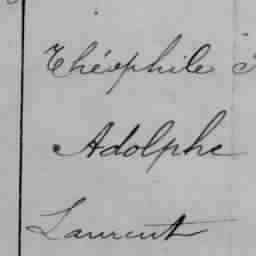 Théophile
Adolphe
Laurent